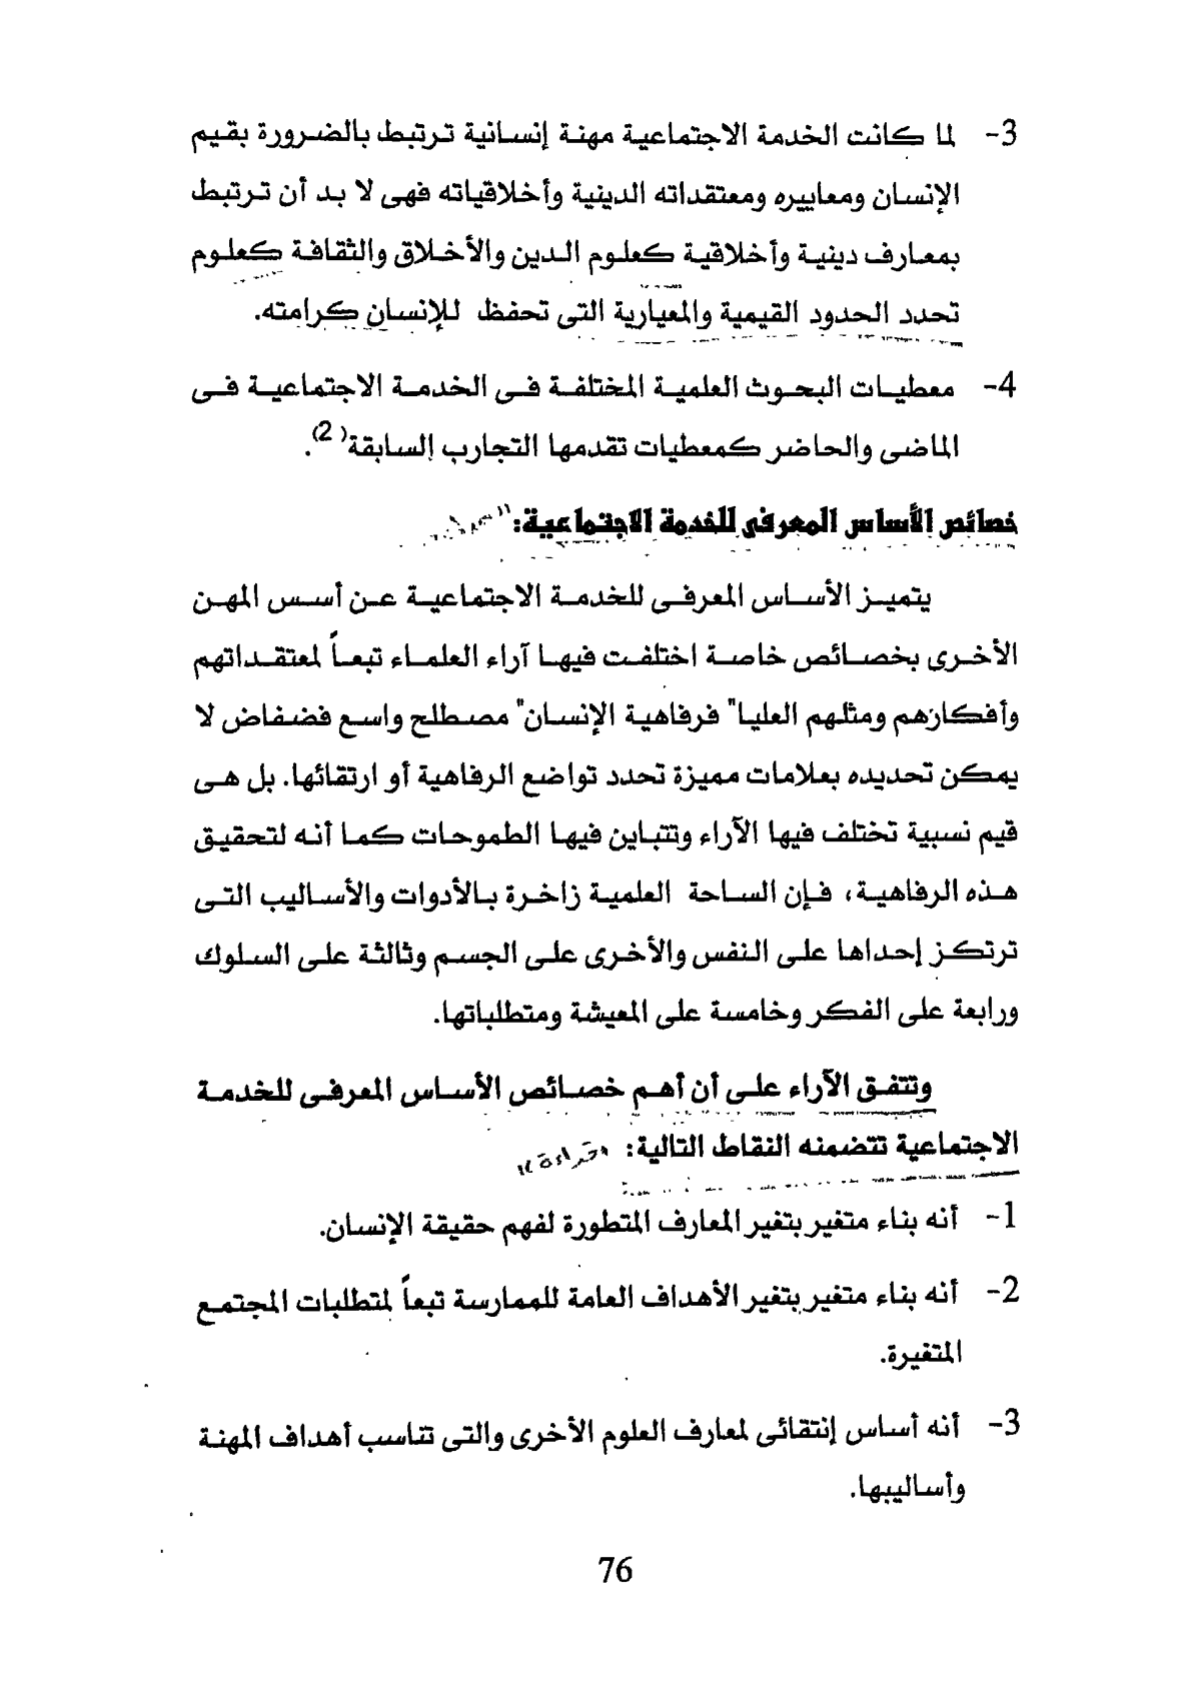 3- لما كانت الخدمة الاجتماعية مهنة إنسانية ترتبط بالضرورة بقيم
الإنسان ومعاييره ومعتقداته الدينية وأخلاقياته فهى لا بد أن ترتبط
بمعارف دينية وأخلاقية كعلوم الدين والأخلاق والثقافة كعلوم
تحدد الحدود القيمية والمعيارية التى تحفظ للإنسان كرامته.
4- معطيات البحوث العلمية المختلفة فى الخدمة الاجتماعية فى
الماضى والحاضر كمعطيات تقدمها التجارب السابقة(2).
خصائص الأساس المعرفى للخدمة الاجتماعية:
يتميز الأساس المعرفى للخدمة الاجتماعية عن أسس المهن
الأخرى بخصائص خاصة اختلفت فيها آراء العلماء تبعاً لمعتقداتهم
وأفكارهم ومثلهم العليا" فرفاهية الإنسان" مصطلح واسع فضفاض لا
يمكن تحديده بعلامات مميزة تحدد تواضع الرفاهية أو ارتقائها. بل هى
قيم نسبية تختلف فيها الآراء وتتباين فيها الطموحات كما أنه لتحقيق
هذه الرفاهية، فإن الساحة العلمية زاخرة بالأدوات والأساليب التى
ترتكز إحداها على النفس والأخرى على الجسم وثالثة على السلوك
ورابعة على الفكر وخامسة على المعيشة ومتطلباتها.
وتتفق الآراء على أن أهم خصائص الأساس المعرفى للخدمة
الاجتماعية تتضمنه النقاط التالية: "قراءة"
1- أنه بناء متغير بتغير المعارف المتطورة لفهم حقيقة الإنسان.
2- أنه بناء متغير بتغير الأهداف العامة للممارسة تبعاً لمتطلبات المجتمع
المتغيرة.
3- أنه أساس إنتقائى لمعارف العلوم الأخرى والتى تناسب أهداف المهنة
وأساليبها.
76